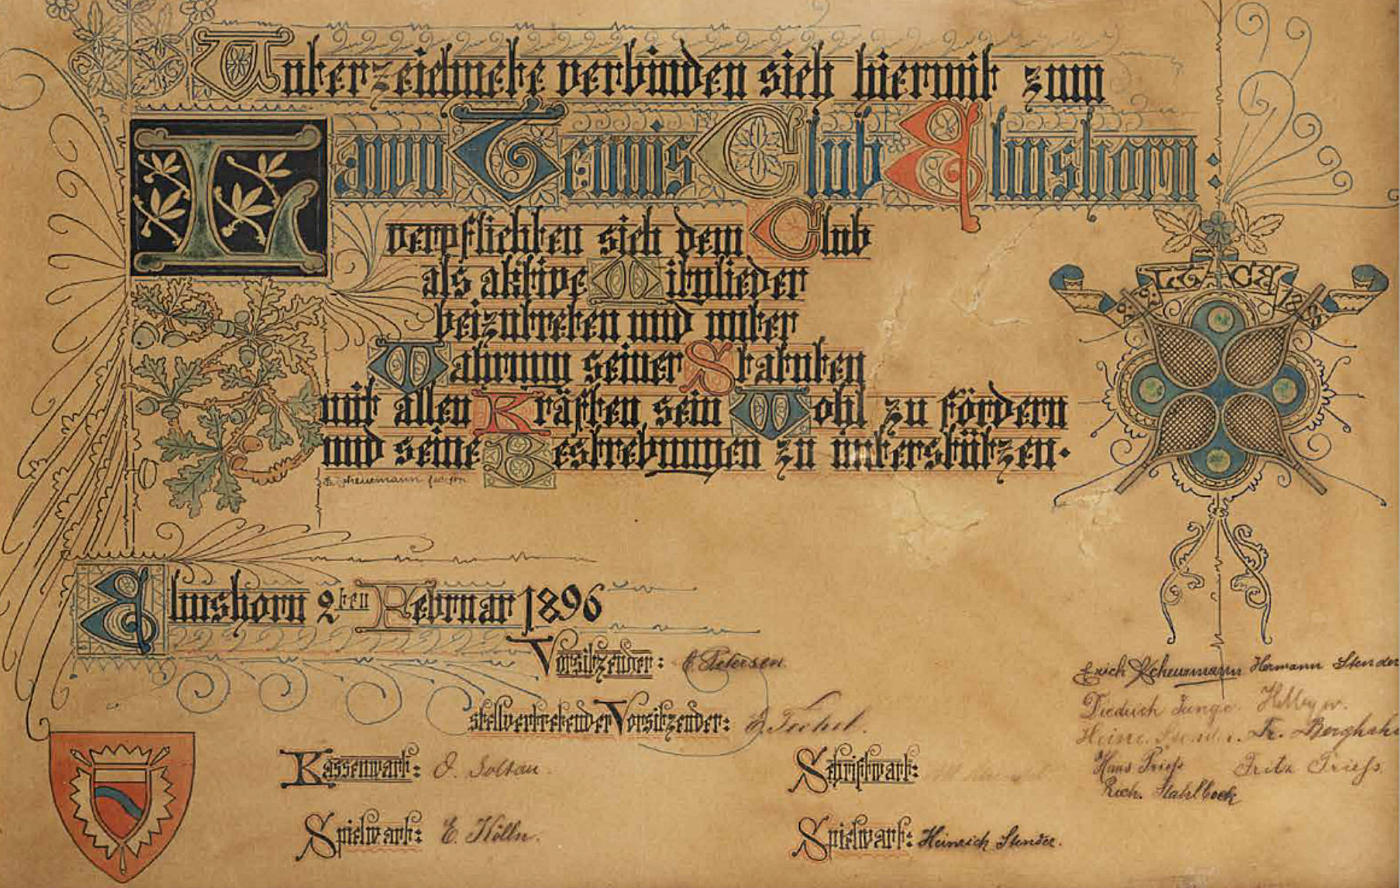 Unterzeichnete verbinden sich hiermit zum
Lawn Tennis Club Elmshorn:
verpflichten sich dem Club
als aktive Mitglieder
beizutreten und unter
Wahrung seiner Statuten
mit allen Kräften sein Wohl zu fördern
und seine Bestrebungen zu unterstützen.
Scheuermann
L.T.C.E.
Elmshorn 2ten Februar 1896
Vorsitzender: Petersen
stellvertretender Vorsitzender:
Kassenwart: O. Soltau.
Schriftwart:
Spielwart: E. Kölln.
Spielwart: Heinrich Stender.
Erich Scheuermann Hermann Stender
Diedrich Junge.
Heinr.
Fr.
Hans Triefs Fritz Triefs
Rich. Stahlbock